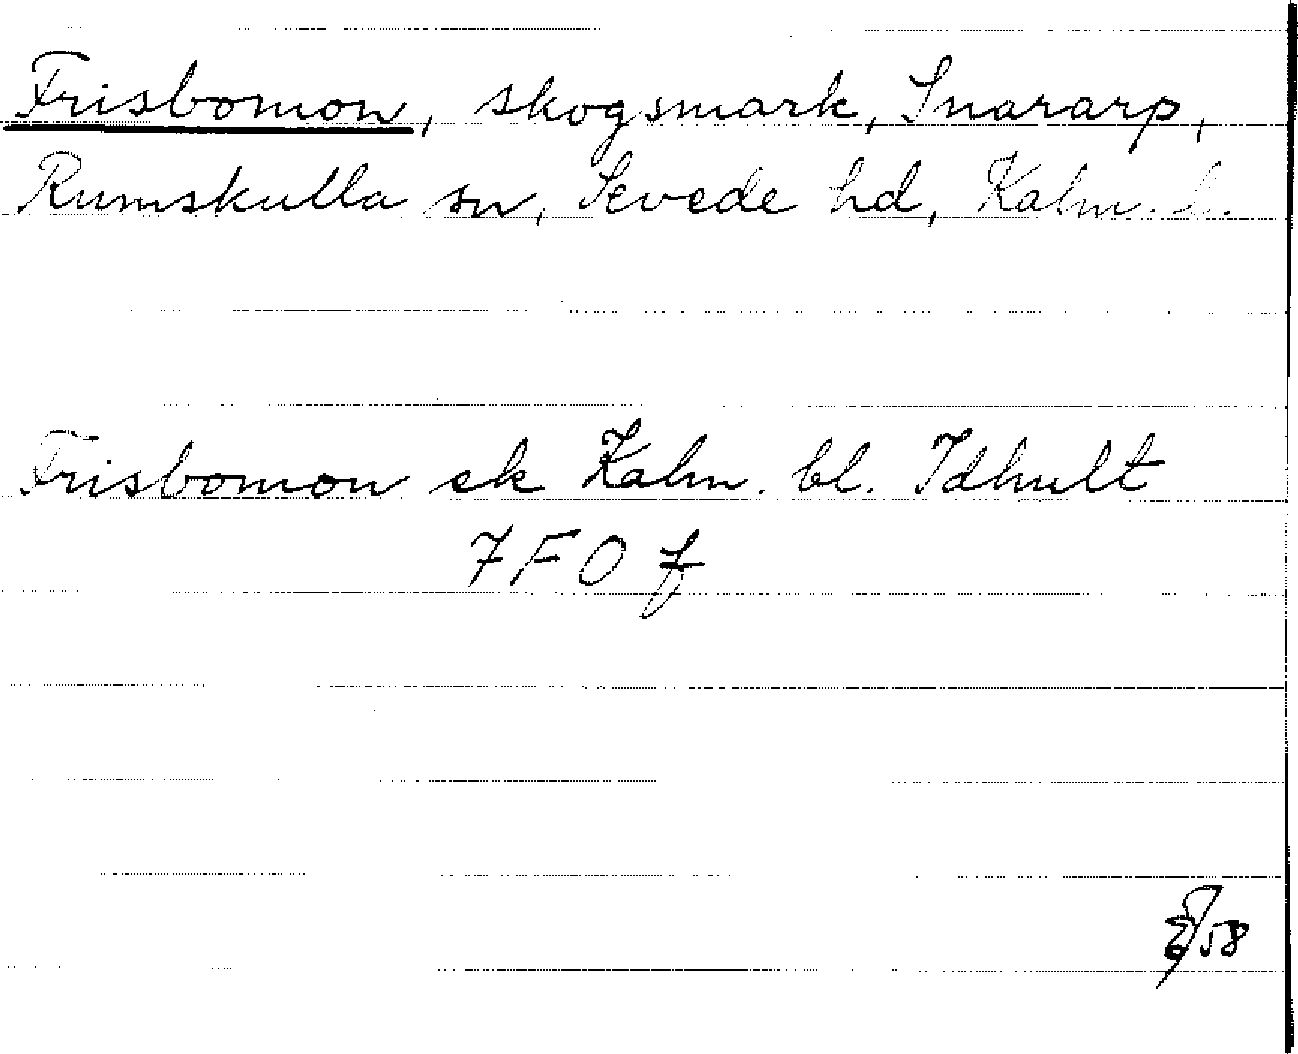 Frisbomon, skogsmark, Snararp,
Rumskulla sn, Sevede hd, Kalm. l.
Frisbomon ek Kalm. bl. Idhult
7F0f
/58